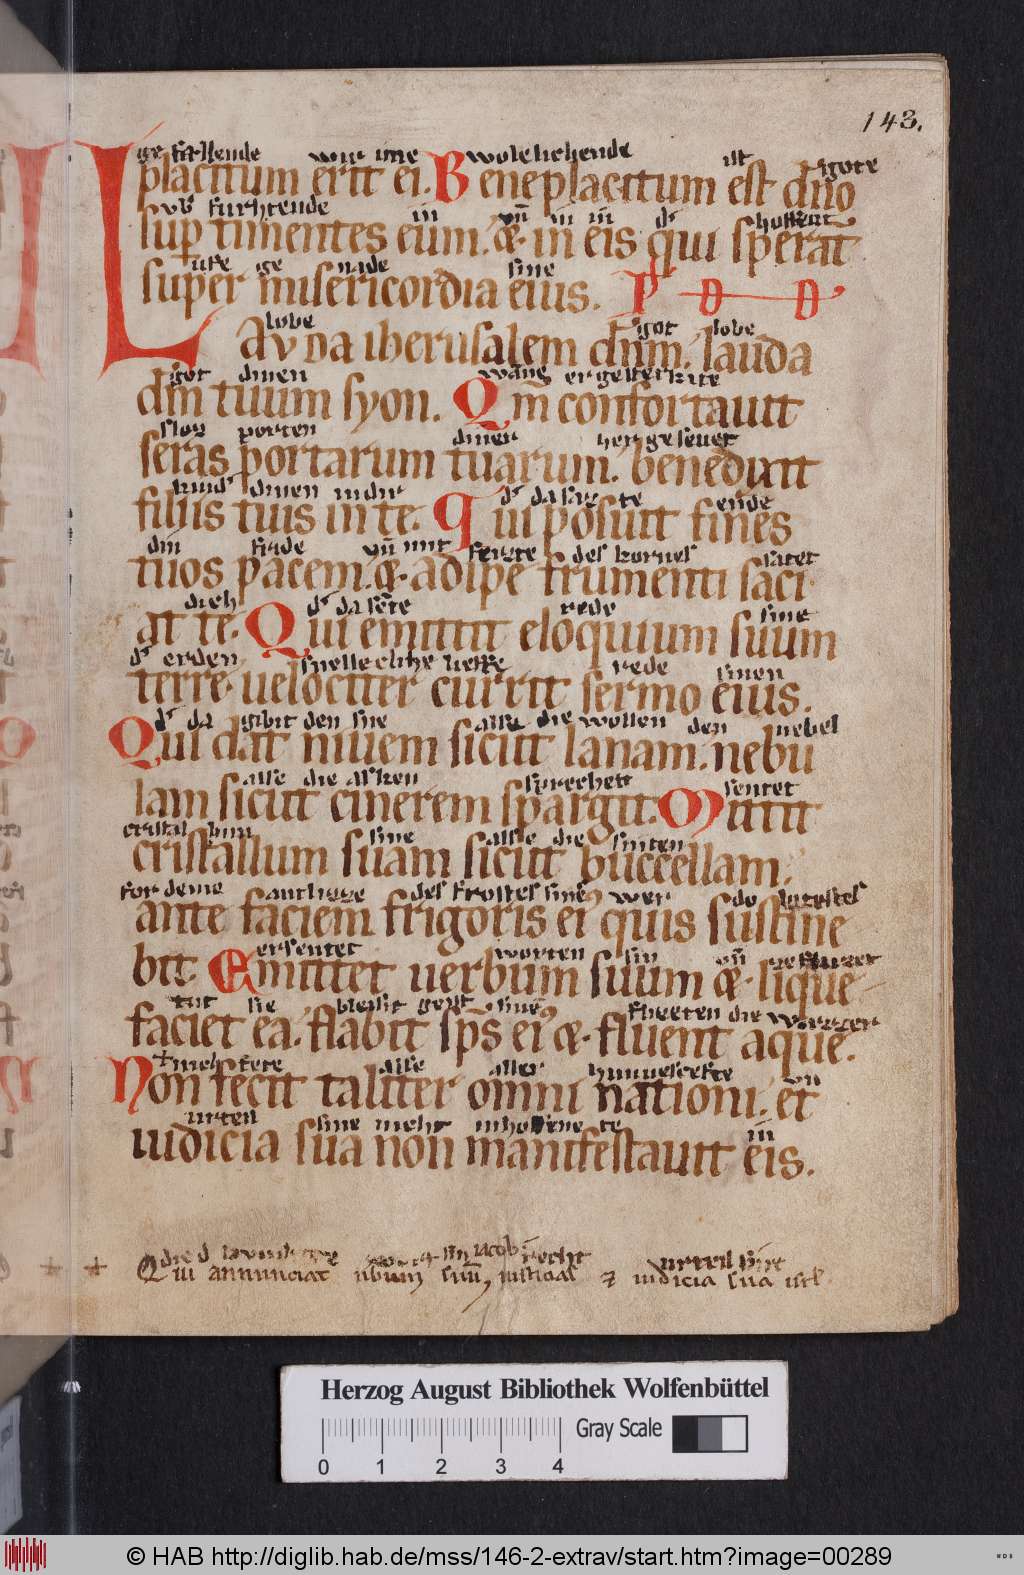 143.
ge fallende wir ime wolelichende ist gote
placitum erit ei. Beneplacitum est dño
vb furhtende in vñ in in d' hoffent
sup timentes eum. & in eis qui sperāt
ufe ge nade sine
super misericordia eius. Ps D D
lobe got lobe
LAVDA iherusalem dñm. lauda
got dinen wāne er gesterkite
dm̄ tuum syon. Qm̄ confortauit
sloz porten diner her gesenet
seras portarum tuarum. benedixit
kind' dinen in dir d' da saz te ende
filiis tuis in te. Qui posuit fines
din fride vñ mit feizte des kornes satet
tuos pacem. & adipe frumenti saci
dich d' da sēte rede sine
at te. Qui emittit eloquium suum
d' erden snelle cliche rede sinen
terre. uelociter currit sermo eius.
d' da gibit den sne alse die wollen den nebel
Qui dat niuem sicut lanam. nebu
alse die asken sprechett sentet
lam sicut cinerem spargit. Mittit
cristal sine alse die
cristallum suam sicut buccellam.
for deme antlizze des frostes sines wer
ante faciem frigoris ei quis sustine
ersentet worten sin vñ
bit. Emittet uerbum suum & lique
tut sie geist die wazzer
faciet ea. flabit sp̄s ei & fluent aque.
alse aller vn
Non fecit taliter omni nationi. et
urten sine nieht te in
iudicia sua non manifestauit eis.
iacob recht urteil sine
Qui annunciat ubum suū, iusticias & iudicia sua isrl
Herzog August Bibliothek Wolfenbüttel
Gray Scale
0 1 2 3 4
© HAB http://diglib.hab.de/mss/146-2-extrav/start.htm?image=00289
WDB